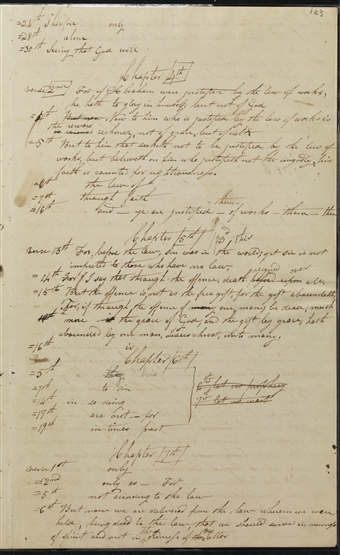 123
=24th I therefore only
=28th alone
=30th Seeing that God will
Chapter 4th
verse 2nd For if Abraham were justified by the law of works,
he hath to glory in himself, but not of God
=4th Now to him who is justified by the law of works is
the reward
reckoned, not of grace, but of debt
=5th But to him that seeketh not to be justified by the law of
works, but believeth on him who justifieth not the ungodly, his
faith is counted for righteousness.
=6th the law of
=7th through faith
=16th and ye are justified of works them
Chapter 5th
verse 13th For, before the law, sin was in the world; yet sin is not
imputed to those who have no law,
=14th For I say that through the offence, death over
=15th But the offence is not as the free gift, for the gift aboundeth,
For, if through the offence of one, many be dead, much
more the grace of God, and the gift by grace, hath
abounded by one man, Jesus Christ, unto many.
=16th is
Chapter 6th
=5th
=7th to sin
=14th in so doing
=17th are not for
=19th in times past
Chapter 7th
verse 1st only
=2nd only as For
=5th not according to the law
=6th But now we are delivered from the law wherein we were
held, being dead to the law, that we should serve in newness
of spirit and not in the oldness of the letter